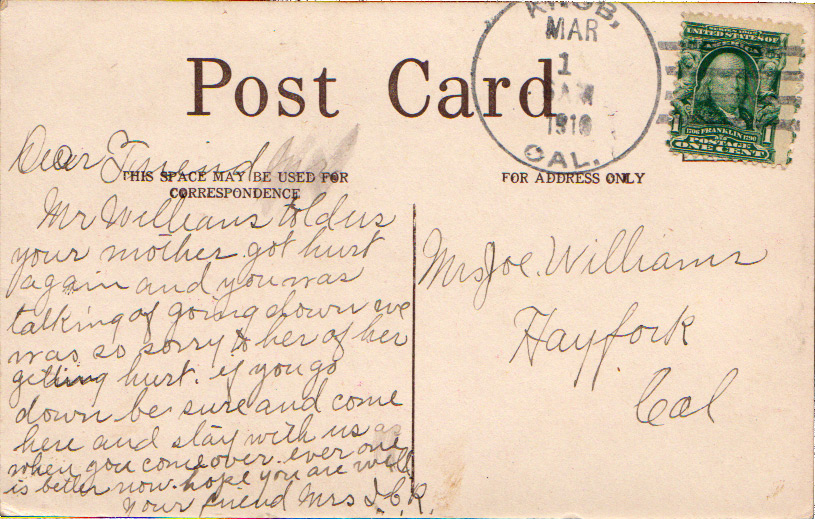 Post Card
KNOB,
MAR
1
AM
1910
CAL.
SERIES 1902
UNITED STATES OF
AMERICA
1706 FRANKLIN 1790
1 1
POSTAGE
ONE CENT
THIS SPACE MAY BE USED FOR
CORRESPONDENCE
FOR ADDRESS ONLY
Dear Friend
Mr Willians told us
your mother got hurt
again and you was
talking of going down we
was so sorry to her of her
getting hurt. if you go
down be sure and come
here and stay with us
when you come over. ever one
is better now. hope you are well
Your friend Mrs I.C.R.
Mrs Joe. Williams
Hayfork
Cal